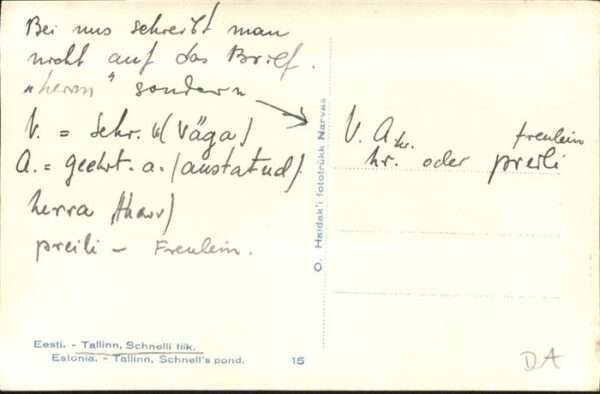 Bei uns schreibt man
nicht auf das Brief.
„herrn" sondern
V. = Sehr. (Väga)
A. = geehrt. a. (austatud)
herra /
preili - Freulein.
V. A. hr. freulein
hr. oder preili
O. Haidak'i fototrükk Narvas
Eesti. - Tallinn, Schnelli tiik.
Estonia. - Tallinn, Schnell's pond.
15
DA